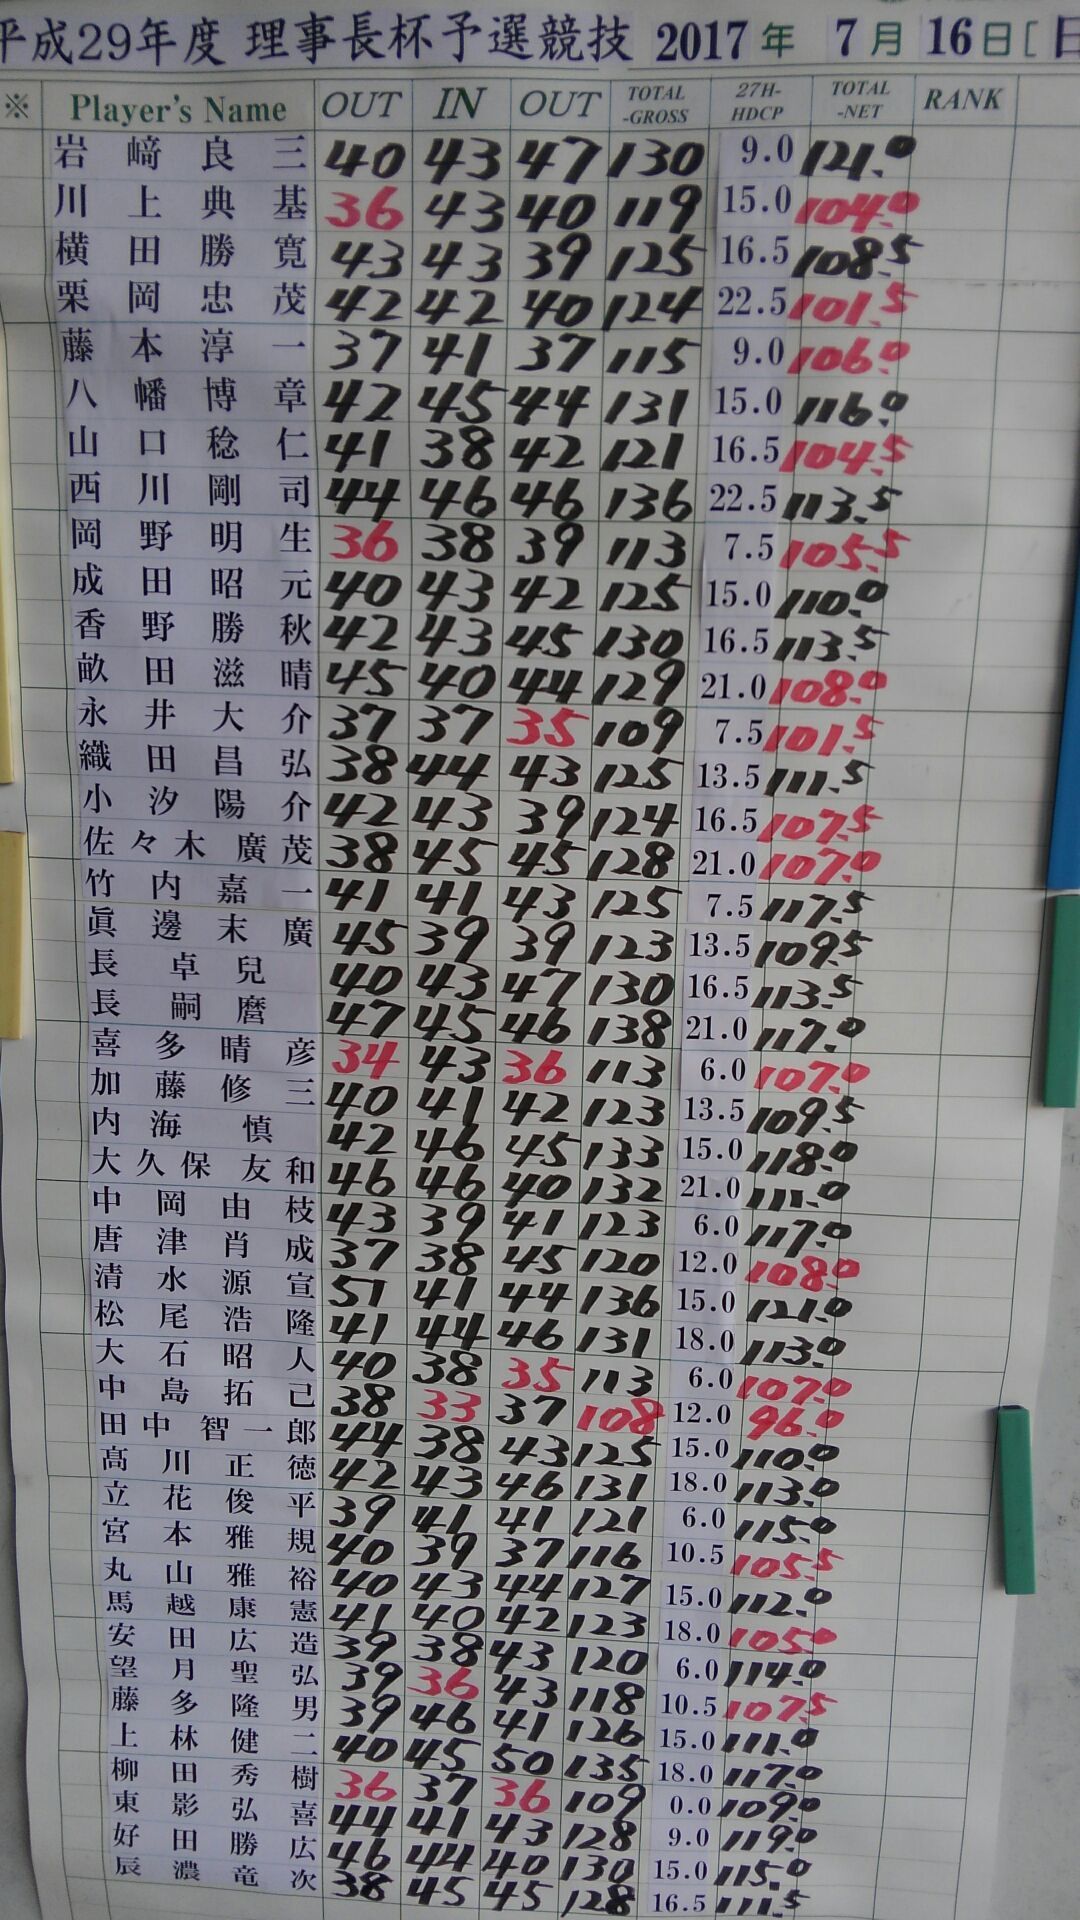 平成29年度 理事長杯予選競技 2017年 7月 16日[日
※ Player's Name OUT IN OUT TOTAL-GROSS 27H-HDCP TOTAL-NET RANK
岩﨑良三 40 43 47 130 9.0 121.0
川上典基 36 43 40 119 15.0 104.0
横田勝寛 43 43 39 125 16.5 108.5
栗岡忠茂 42 42 40 124 22.5 101.5
藤本淳一 37 41 37 115 9.0 106.0
八幡博章 42 45 44 131 15.0 116.0
山口稔仁 41 38 42 121 16.5 104.5
西川剛司 44 46 46 136 22.5 113.5
岡野明生 36 38 39 113 7.5 105.5
成田昭元 40 43 42 125 15.0 110.0
香野勝秋 42 43 45 130 16.5 113.5
畝田滋晴 45 40 44 129 21.0 108.0
永井大介 37 37 35 109 7.5 101.5
織田昌弘 38 44 43 125 13.5 111.5
小汐陽介 42 43 39 124 16.5 107.5
佐々木廣茂 38 45 45 128 21.0 107.0
竹内嘉一 41 41 43 125 7.5 117.5
眞邊末廣 45 39 39 123 13.5 109.5
長卓兒 40 43 47 130 16.5 113.5
長嗣麿 47 45 46 138 21.0 117.0
喜多晴彦 34 43 36 113 6.0 107.0
加藤修三 40 41 42 123 13.5 109.5
内海慎 42 46 45 133 15.0 118.0
大久保友和 46 46 40 132 21.0 111.0
中岡由枝 43 39 41 123 6.0 117.0
唐津肖成 37 38 45 120 12.0 108.0
清水源宣 51 41 44 136 15.0 121.0
松尾浩隆 41 44 46 131 18.0 113.0
大石昭人 40 38 35 113 6.0 107.0
中島拓己 38 33 37 108 12.0 96.0
田中智一郎 44 38 43 125 15.0 110.0
髙川正徳 42 43 46 131 18.0 113.0
立花俊平 39 41 41 121 6.0 115.0
宮本雅規 40 39 37 116 10.5 105.5
丸山雅裕 40 43 44 127 15.0 112.0
馬越康憲 41 40 42 123 18.0 105.0
安田広造 39 38 43 120 6.0 114.0
望月聖弘 39 36 43 118 10.5 107.5
藤多隆男 39 46 41 126 15.0 111.0
上林健二 40 45 50 135 18.0 117.0
柳田秀樹 36 37 36 109 0.0 109.0
東影弘喜 44 41 43 128 9.0 119.0
好田勝広 46 44 40 130 15.0 115.0
辰濃竜次 38 45 45 128 16.5 111.5